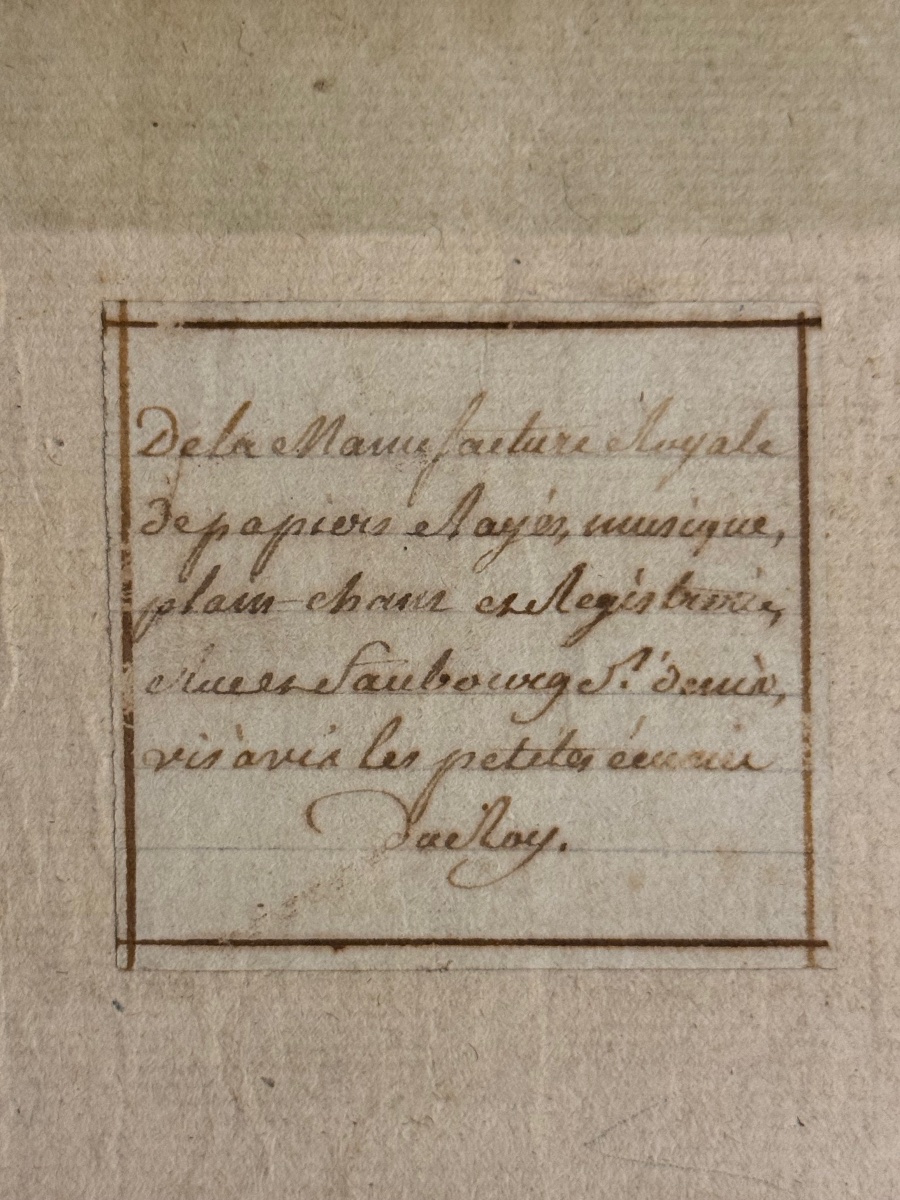 De la Manufacture Royale
de papiers Rayés, musique,
plain-chant et Régistrerie,
Rue et Faubourg St. denis,
vis à vis les petites écuries
du Roy.